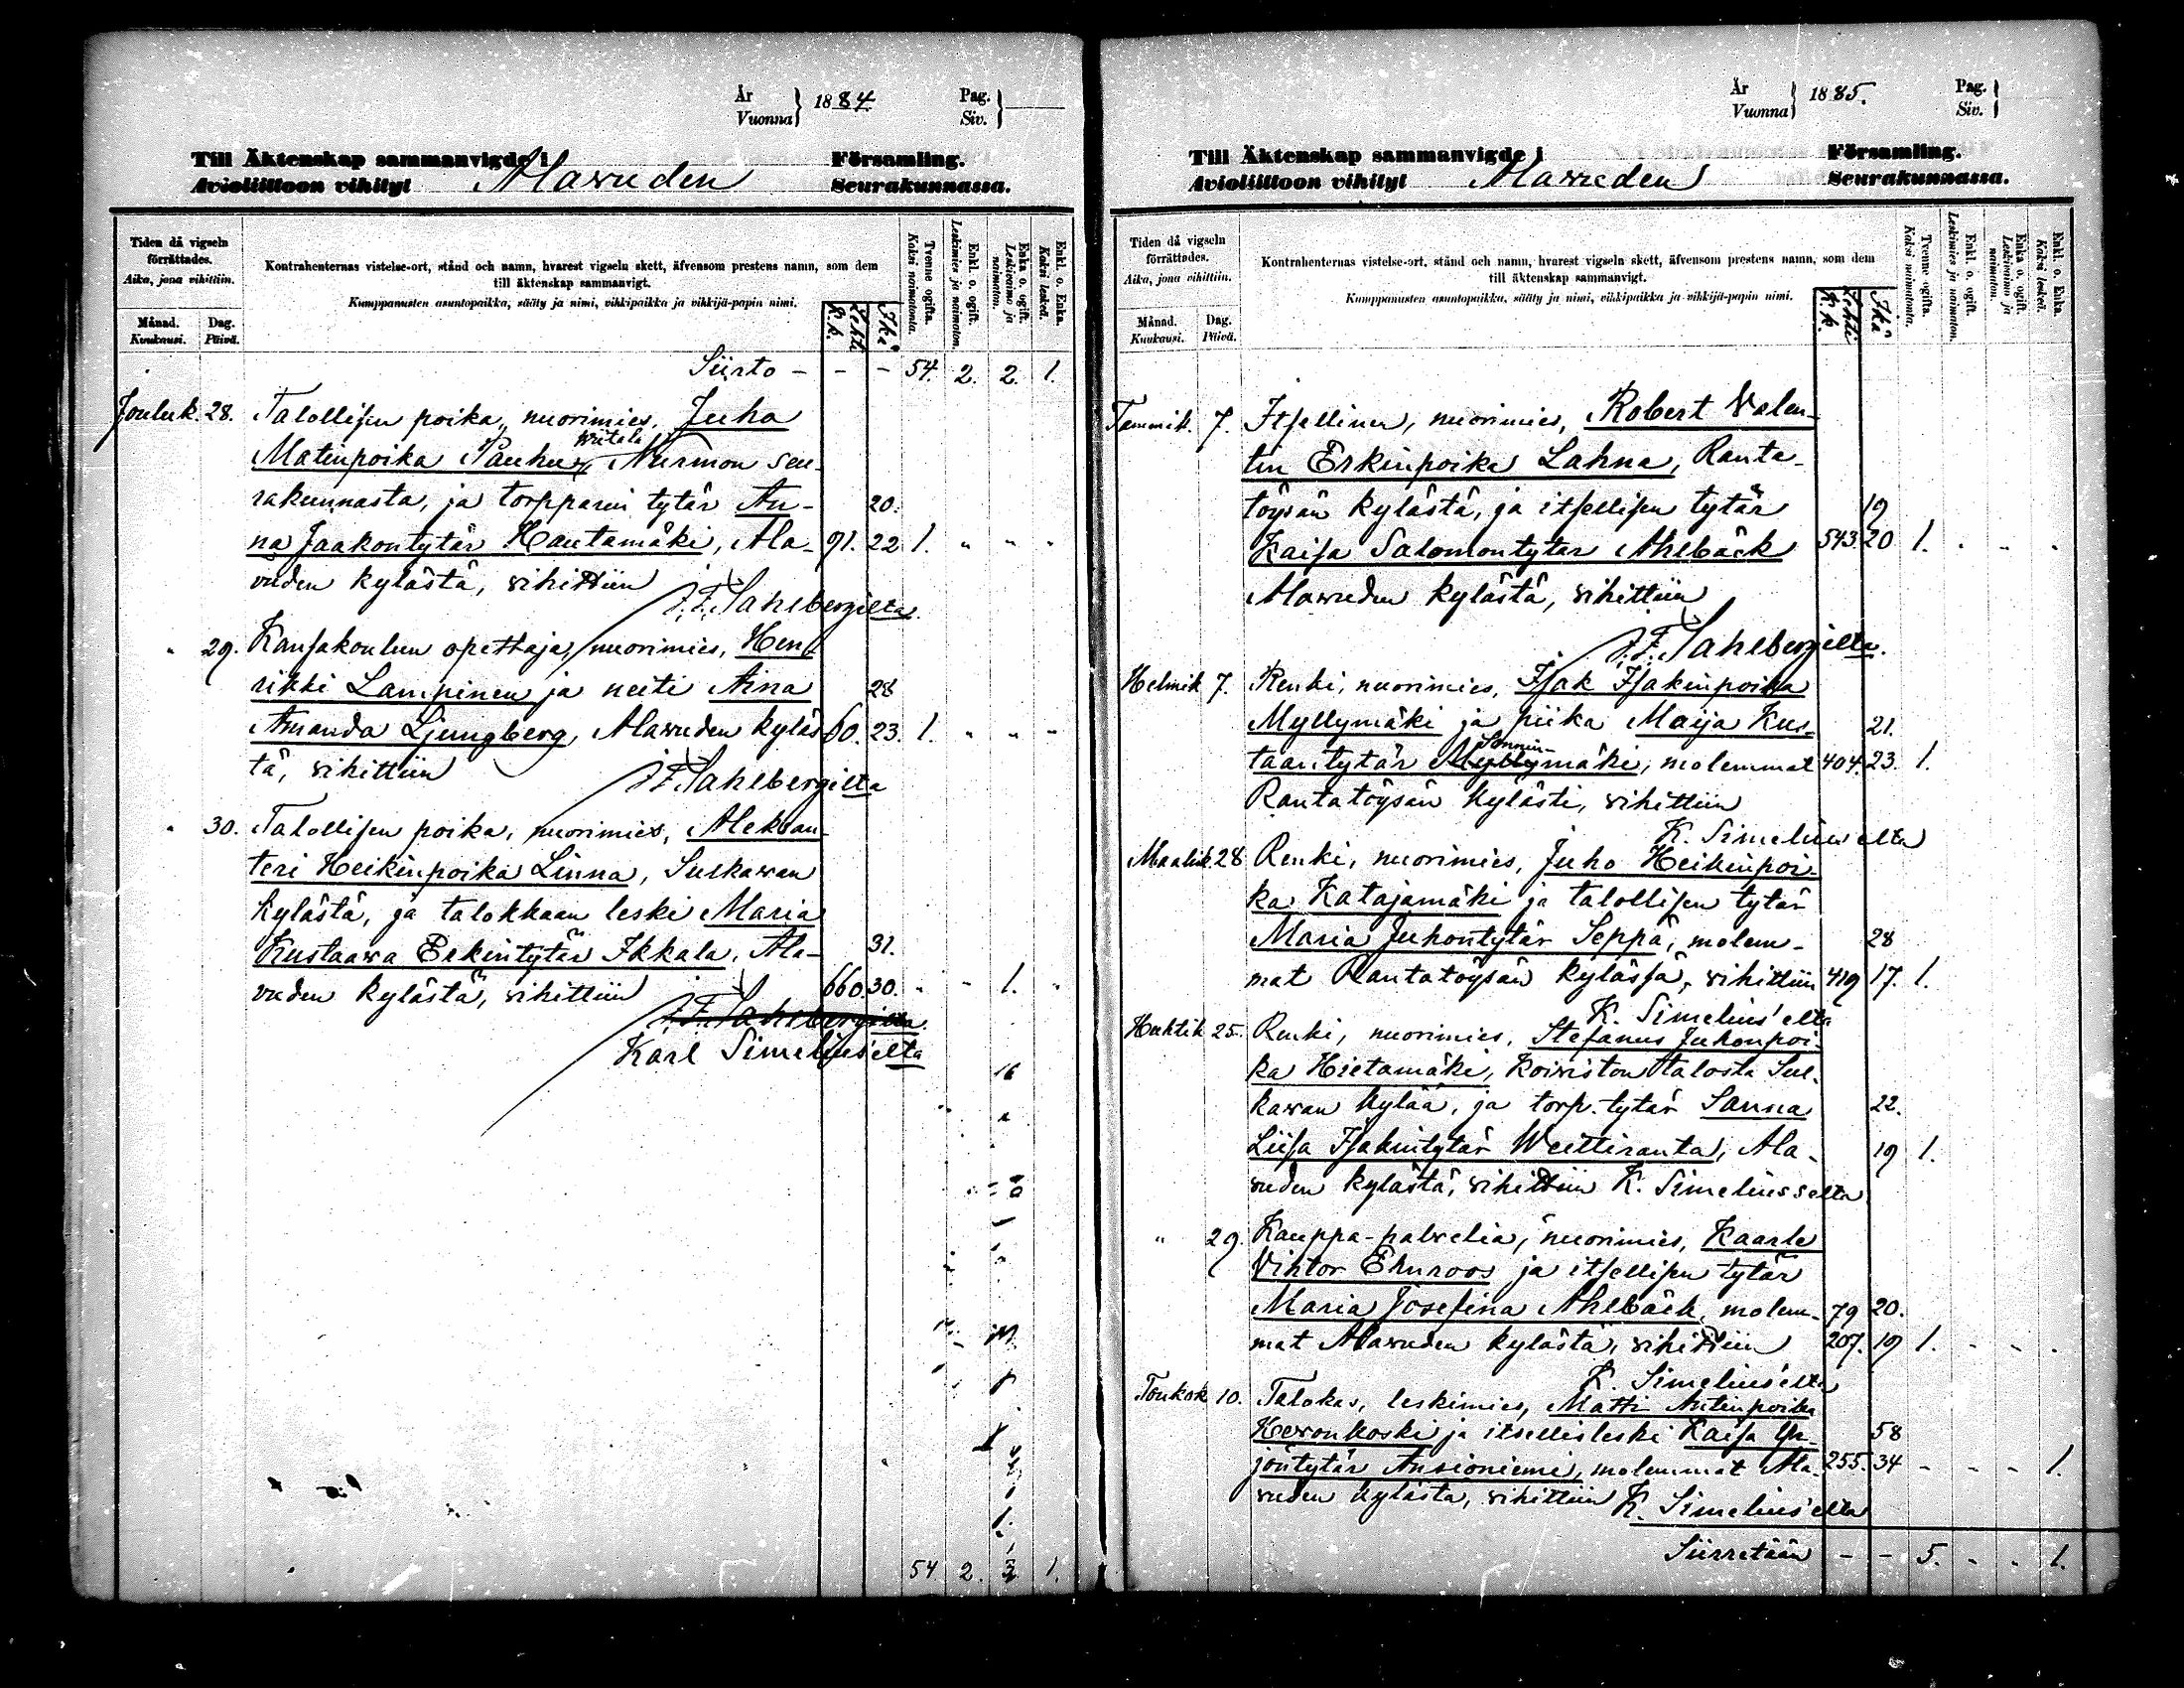 År
Vuonna } 1884
Pag.
Siv. }
Till Äktenskap sammanvigde i Församling.
Avioliittoon vihityt Alawuden Seurakunnassa.
Tiden då vigseln förrättades.
Aika, jona vihittiin.
Månad. Kuukausi.
Dag. Päivä.
Kontrahenternas vistelse-ort, stånd och namn, hvarest vigseln skett, äfvensom prestens namn, som dem
till äktenskap sammanvigt.
Kumppanusten asuntopaikka, sääty ja nimi, vihkipaikka ja vihkijä-papin nimi.
R.k. Lehti
Ikä
Tvenne ogifta. Kaksi naimatonta.
Enkl. o. ogift. Leskimies ja naimaton.
Enka o. ogift. Leskivaimo ja naimaton.
Enkl. o. Enka. Kaksi leskeä.
Siirto - - - 54. 2. 2. 1.
Jouluk. 28. Talollisen poika, nuorimies, Juha
Wiitala
Matinpoika Pauhu, Nurmon seu-
rakunnasta, ja torpparin tytär An- 20.
na Jaakontytär Hautamäki, Ala- 91. 22 1. " " "
vuden kylästä, vihittiin
J.F. Sahlbergilta.
" 29. Kansakoulun opettaja, nuorimies, Hen-
rikki Lampinen ja neiti Aina 28
Amanda Ljungberg, Alawuden kyläs 60. 23. 1. " " "
tä, vihittiin
J.F. Sahlbergilta
" 30. Talollisen poika, nuorimies, Aleksan-
teri Heikinpoika Linna, Sulkawan
kylästä, ja talokkaan leski Maria
Kustaawa Erkintytär Ikkala, Ala- 31.
vuden kylästä, vihittiin 660. 30. " " 1. "
J.F. Sahlbergilta.
Karl Simelius'elta
54 2. 3 1.
År
Vuonna } 1885.
Pag.
Siv. }
Till Äktenskap sammanvigde i Församling.
Avioliittoon vihityt Alawuden Seurakunnassa.
Tiden då vigseln förrättades.
Aika, jona vihittiin.
Månad. Kuukausi.
Dag. Päivä.
Kontrahenternas vistelse-ort, stånd och namn, hvarest vigseln skett, äfvensom prestens namn, som dem
till äktenskap sammanvigt.
Kumppanusten asuntopaikka, sääty ja nimi, vihkipaikka ja vihkijä-papin nimi.
R.k. Lehti
Ikä
Tvenne ogifta. Kaksi naimatonta.
Enkl. o. ogift. Leskimies ja naimaton.
Enka o. ogift. Leskivaimo ja naimaton.
Enkl. o. Enka. Kaksi leskeä.
Tammik. 7. Itsellinen, nuorimies, Robert Valen-
tin Erkinpoika Lahna, Ranta-
töysän kylästä, ja itsellisen tytär 19
Kaisa Salomontytär Ahlbäck 543. 20 1. " " "
Alawuden kylästä, vihittiin
J.F. Sahlbergilta.
Helmik 7. Renki, nuorimies, Isak Isakinpoika
Myllymäki ja piika Maija Kus- 21.
Sonnin-
taantytär Myllymäki, molemmat 404. 23. 1.
Rantatöysän kylästä, vihittiin
K. Simelius'elta
Maalisk. 28 Renki, nuorimies, Juho Heikinpoi-
ka Katajamäki ja talollisen tytär
Maria Juhontytär Seppä, molem- 28
mat Rantatöysän kylässä, vihittiin 419 17. 1.
K. Simelius'elta
Huhtik 25. Renki, nuorimies, Stefanus Juhonpoi-
ka Hietamäki, Koiwiston talosta Sul-
kawan kylää, ja torp. tytär Sanna 22.
Liisa Isakintytär Weittiranta, Ala- 19 1.
vuden kylästä, vihittiin K. Simeliusselta
" 29. Kauppa-palvelia, nuorimies, Kaarle
Viktor Ehnroos ja itsellisen tytär
Maria Josefina Ahlbäck, molem- 79 20.
mat Alawuden kylästä, vihittiin 207. 19 1. - - .
K. Simelius'elta
Toukok 10. Talokas, leskimies, Matti Antinpoika
Hewonkoski ja itsellisleski Kaisa Yr- 58
jöntytär Ansioniemi, molemmat Ala- 255. 34 - - - 1.
vuden kylästä, vihittiin K. Simelius'elta
Siirretään - - 5. - - 1.